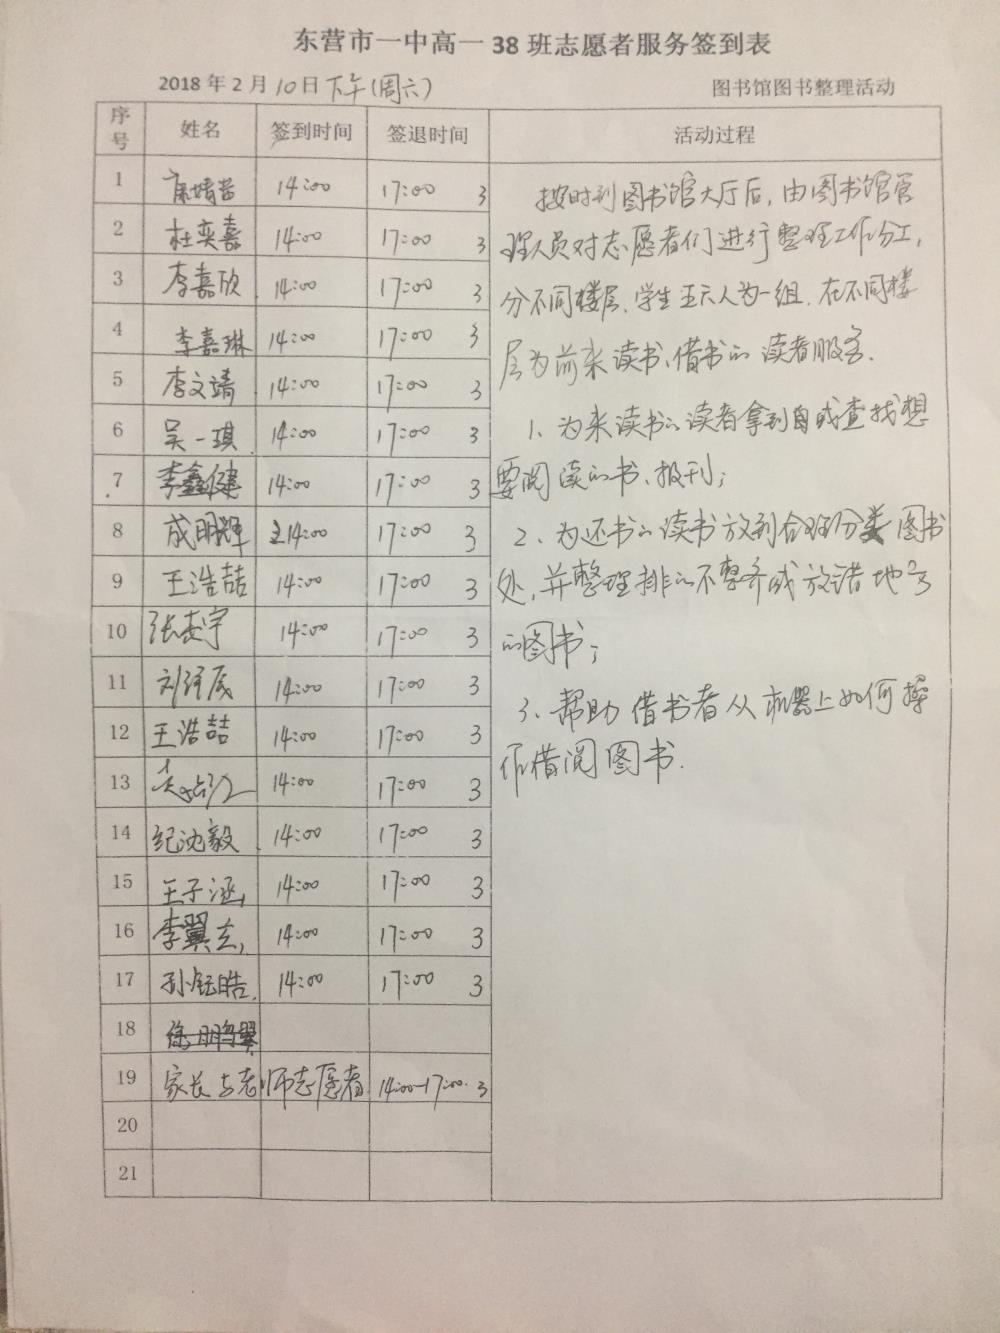 东营市一中高一 38 班志愿者服务签到表
2018 年 2 月 10日 下午(周六) 图书馆图书整理活动
序号 姓名 签到时间 签退时间 活动过程
1 14:00 17:00 3
2 杜奕嘉 14:00 17:00 3
3 李嘉欣 14:00 17:00 3
4 李嘉琳 14:00 17:00 3
5 李文靖 14:00 17:00 3
6 吴一琪 14:00 17:00 3
7 李鑫健 14:00 17:00 3
8 成明辉 14:00 17:00 3
9 王浩喆 14:00 17:00 3
10 14:00 17:00 3
11 14:00 17:00 3
12 王浩喆 14:00 17:00 3
13 14:00 17:00 3
14 纪沈毅 14:00 17:00 3
15 王子涵 14:00 17:00 3
16 14:00 17:00 3
17 孙钰皓 14:00 17:00 3
18
19 家长与老师志愿者 14:00-17:00. 3
20
21
按时到图书馆大厅后,由图书馆管
理人员对志愿者们进行整理工作分工,
分不同楼层、学生五六人为一组.在不同楼
层为前来读书、借书的读者服务.
1、为来读书的读者拿到自或查找想
要阅读的书、报刊;
2、为还书的读书放到合理分类图书
处,并整理排的不整齐或放错地方
的图书;
3、帮助借书者从机器上如何操
作借阅图书.